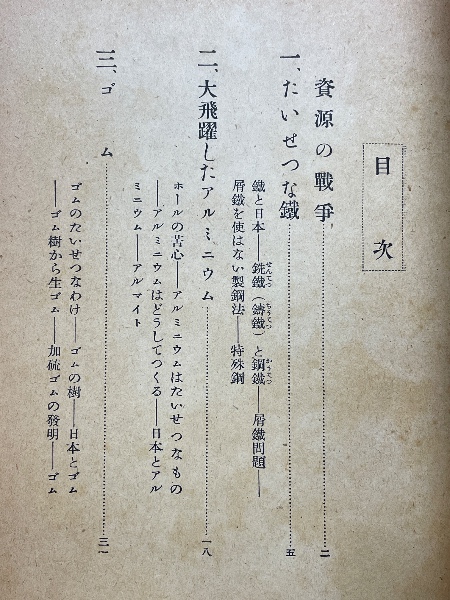 目次
資源の戰爭……二
一、たいせつな鐵……五
鐵と日本――銑鐵（鑄鐵）と鋼鐵――屑鐵問題――
屑鐵を使はない製鋼法――特殊鋼
二、大飛躍したアルミニウム……一八
ホールの苦心――アルミニウムはたいせつなもの
――アルミニウムはどうしてつくる――日本とアル
ミニウム――アルマイト
三、ゴム……三一
ゴムのたいせつなわけ――ゴムの樹――日本とゴム
――ゴム樹から生ゴム――加硫ゴムの發明――ゴム